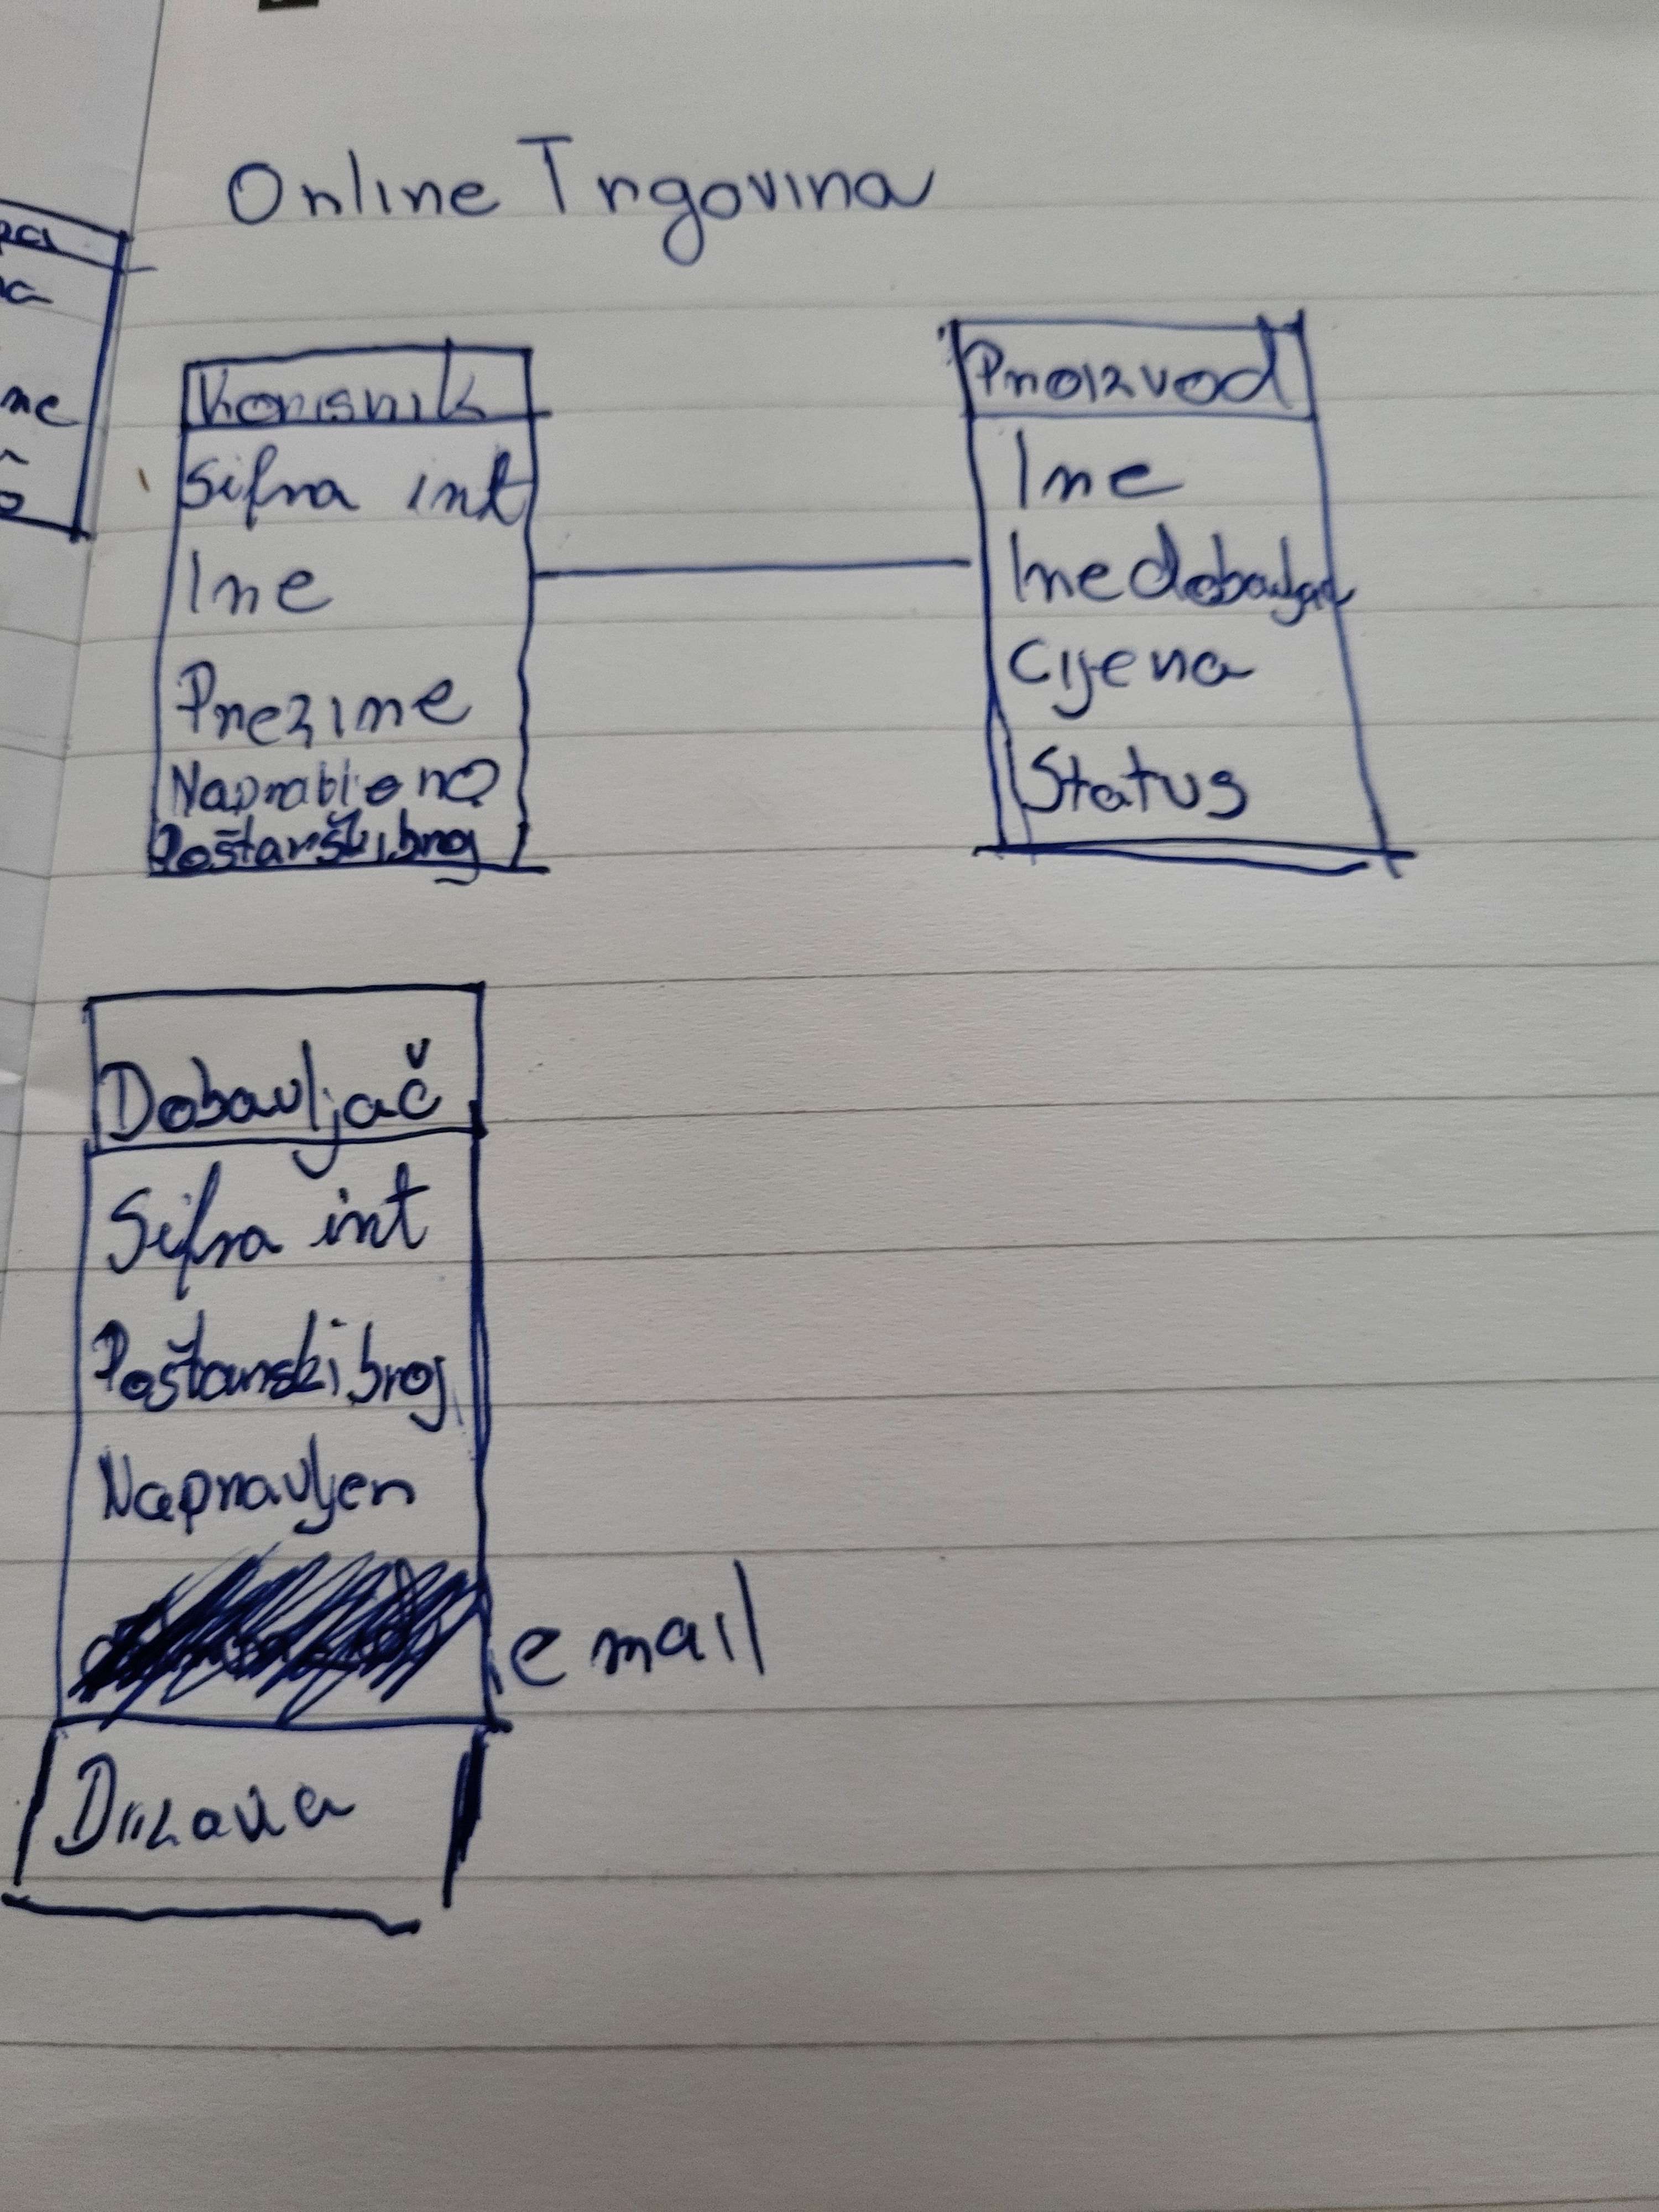 Online Trgovina
Korisnik
Sifra int
Ime
Prezime
Poštanski broj
Proizvod
Ime
Ime dobavljač
Cijena
Status
Dobavljač
Sifra int
Poštanski broj
Napravljen
email
Drzava